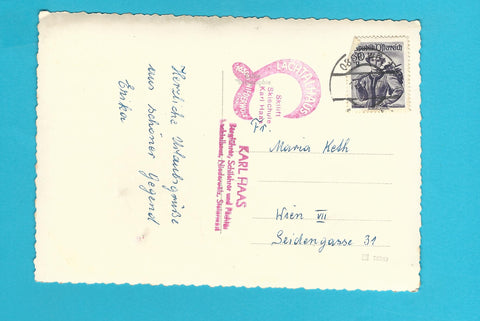 Herzliche Urlaubsgrüße
aus schöner Gegend
Erika
LACHTALHAUS
Skilift
Skischule
Karl Haas
KARL HAAS
Bergführer, Schilehrer und Pächter
Lachtalhaus, Niederwölz, Steiermark
Republik Österreich
Fr.
Maria Keth
Wien VII
Seidengasse 31